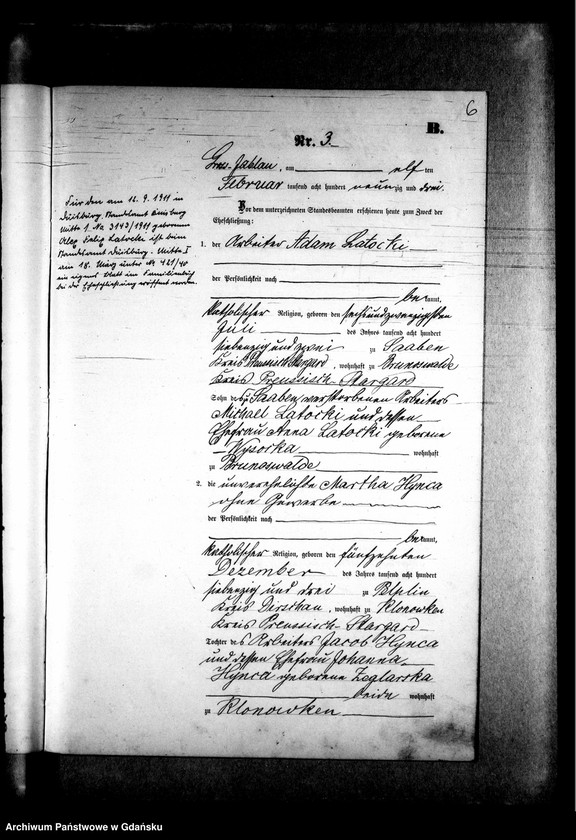 6
B.
Nr. 3.
Gross Jablau, am elf ten
Februar tausend acht hundert neunzig und drei.
Vor dem unterzeichneten Standesbeamten erschienen heute zum Zweck der
Eheschließung:
1. der Arbeiter Adam Latocki
der Persönlichkeit nach
bekannt,
katholischer Religion, geboren den sechsundzwanzigsten
Juli des Jahres tausend acht hundert
siebenzig und zwei zu Saaben
Kreis Preussisch Stargard, wohnhaft zu Brunoswalde
Kreis Preussisch-Stargard
Sohn des zu Saaben verstorbenen Arbeiters
Michael Latocki und dessen
Ehefrau Anna Latocki geborene
Wysocka wohnhaft
zu Brunoswalde
2. die unverehelichte Martha Hynca
ohne Gewerbe
der Persönlichkeit nach
bekannt,
katholischer Religion, geboren den fünfzehnten
Dezember des Jahres tausend acht hundert
siebenzig und drei zu Pelplin
Kreis Dirschau, wohnhaft zu Klonowken
Kreis Preussisch-Stargard
Tochter des Arbeiters Jacob Hynca
und dessen Ehefrau Johanna
Hynca geborene Zeglarska
beide wohnhaft
zu Klonowken
Für den am 16. 9. 1911 in
Duisburg, Standesamt Duisburg
Mitte I Nr. 3142/1911 geborenen
Latocki ist beim
Standesamt Duisburg-Mitte I
am 18. März unter Nr 421/40
ein eigenes Blatt im Familienbuch
bei der Eheschließung eröffnet worden.
Archiwum Państwowe w Gdańsku